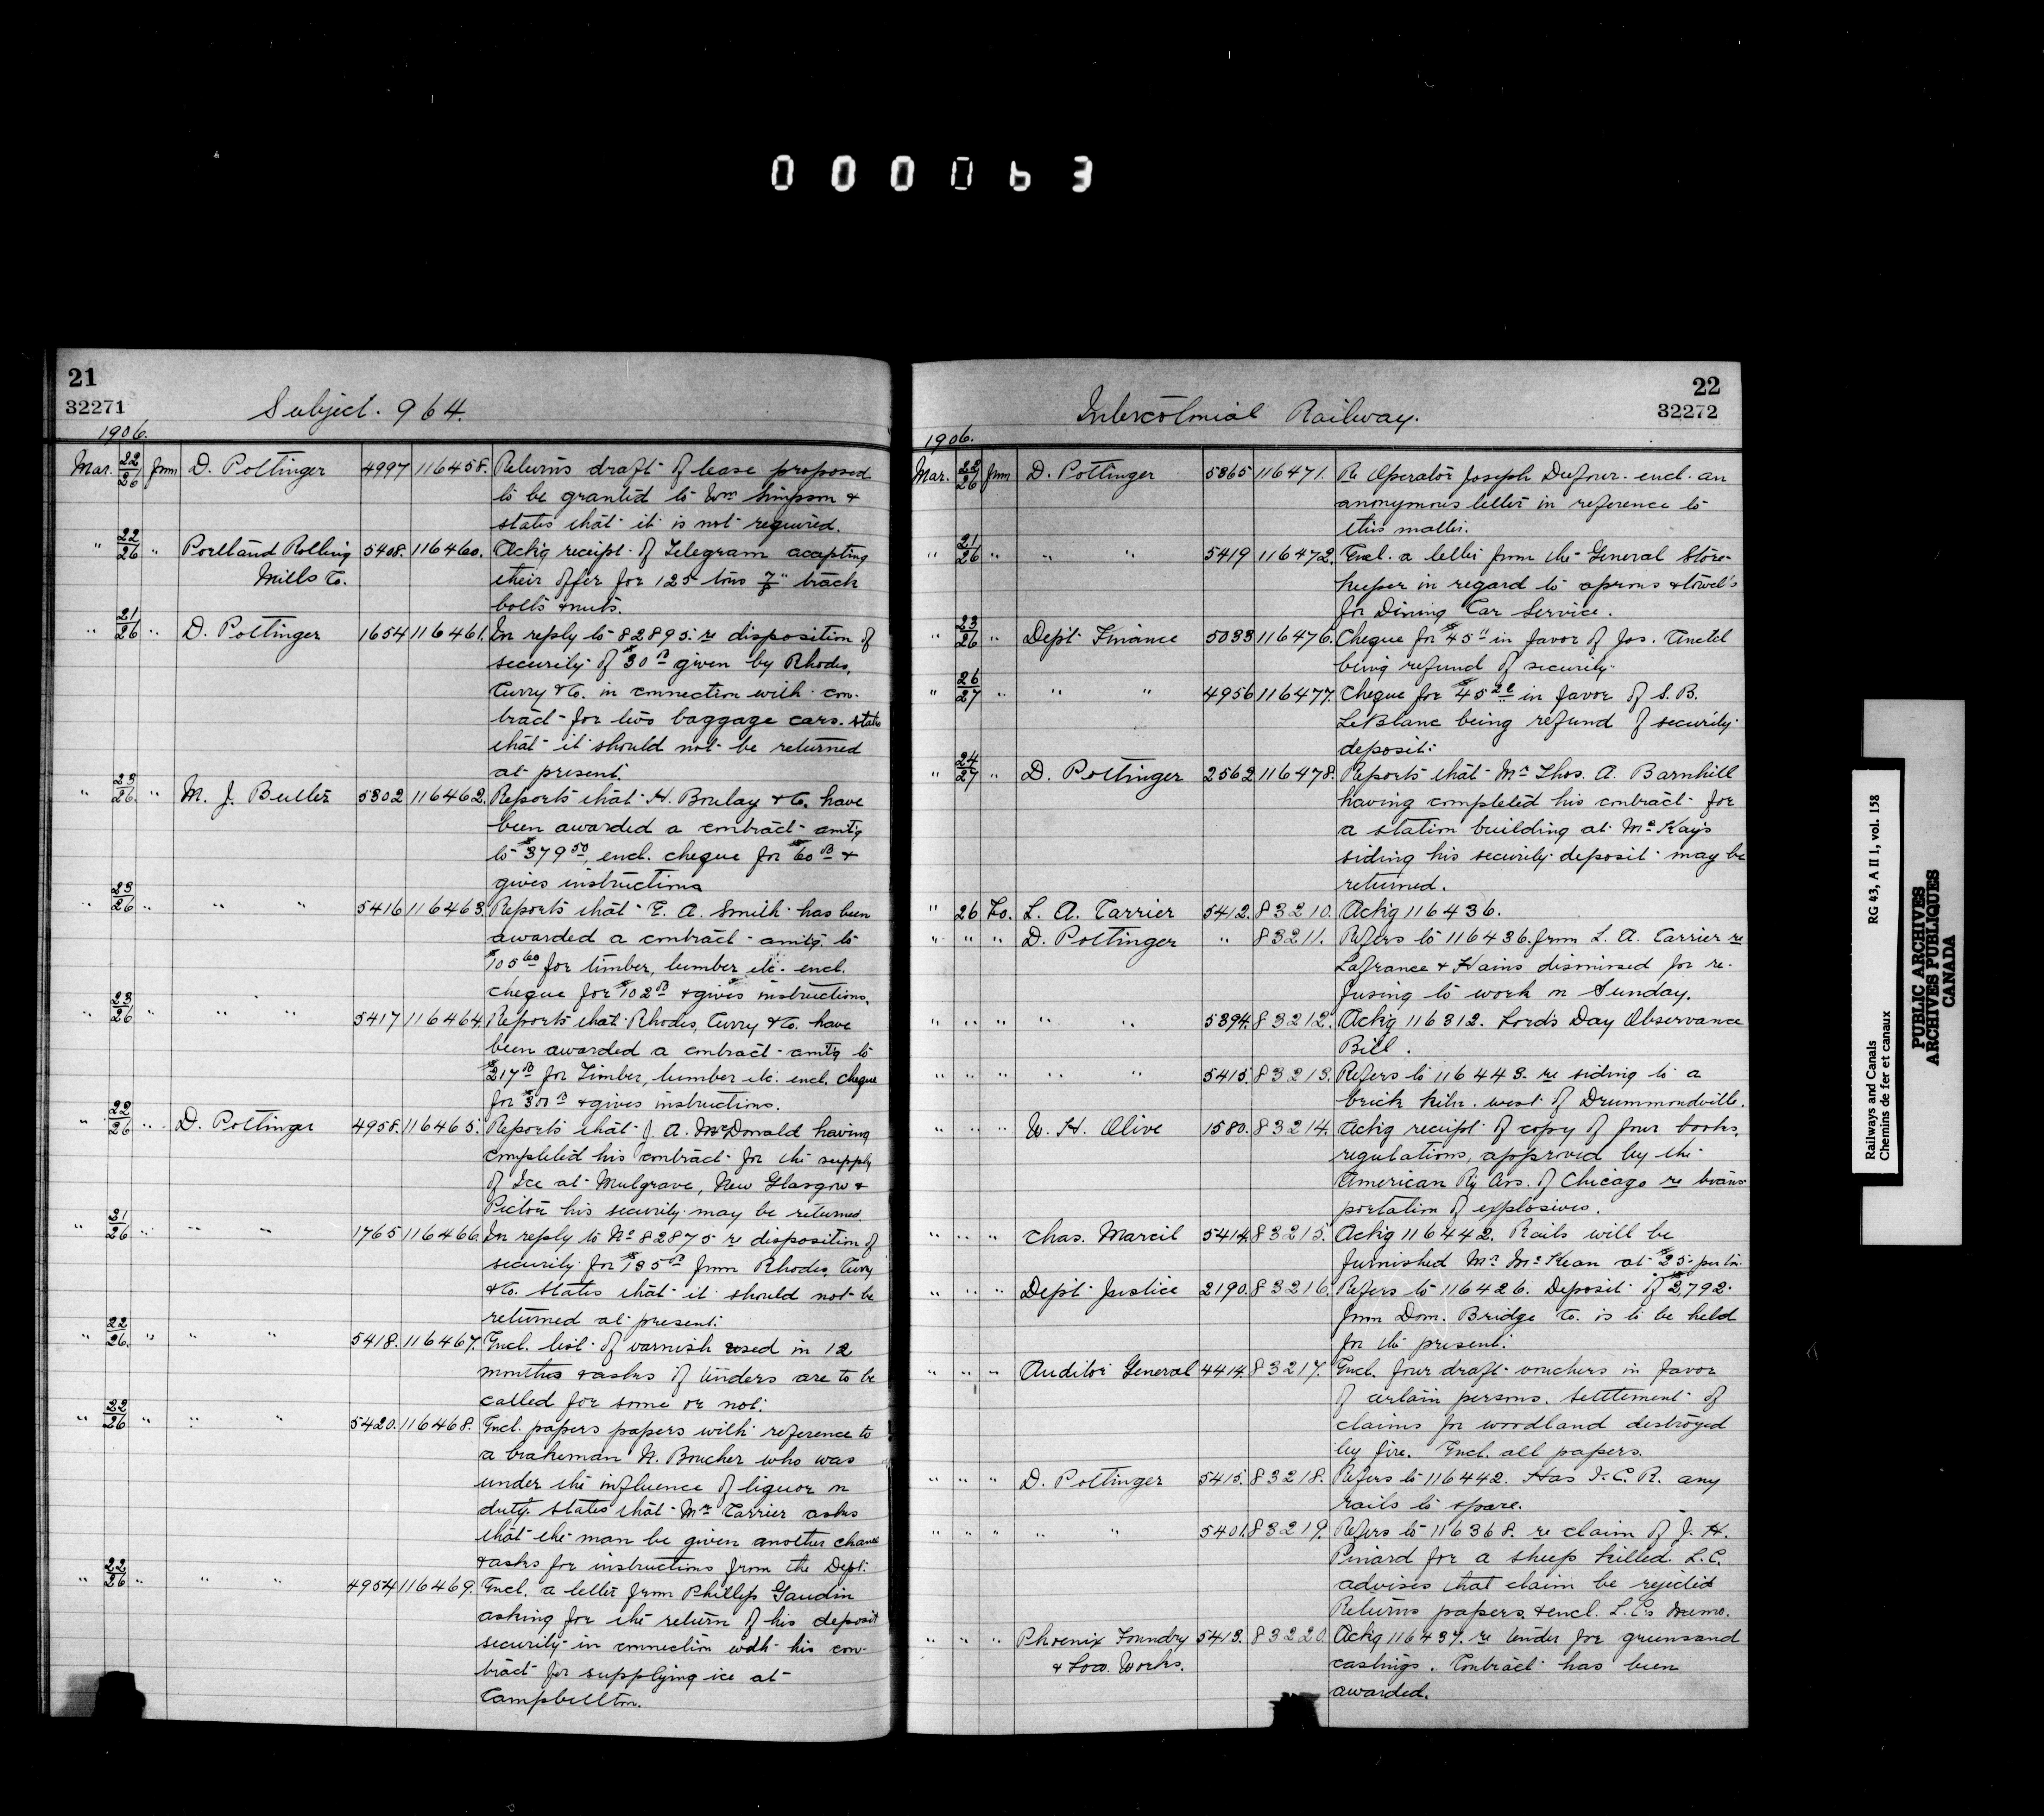 000063
21
32271
Subject. 964.
1906.
Mar. 22/26 from D. Pottinger 4997 116458. Returns draft of lease proposed
to be granted to Wm Simpson &
states that it is not required.
" 22/26 " Portland Rolling 5408. 116460. Ackg receipt of Telegram accepting
Mills Co. their offer for 125 tons 7/8" track
bolts & nuts.
" 21/26 " D. Pottinger 1654 116461. In reply to 82895. re disposition of
security of $30 given by Rhodes,
Curry & Co. in connection with con-
tract for two baggage cars. states
that it should not be returned
at present.
" 23/26 " M. J. Butler 5302 116462. Reports that H. Boulay & Co. have
been awarded a contract amtg
to $379 50, encl. cheque for $60 &
gives instructions
" 23/26 " " " 5416 116463. Reports that E. A. Smith has been
awarded a contract amtg. to
$105 60 for timber, lumber etc. encl.
cheque for $102 & gives instructions.
" 23/26 " " " 5417 116464. Reports that Rhodes, Curry & Co. have
been awarded a contract amtg to
$217 for Timber, lumber etc. encl. cheque
for $301 & gives instructions.
" 22/26 " D. Pottinger 4958. 116465. Reports that J. A. McDonald having
completed his contract for the supply
of Ice at Mulgrave, New Glasgow &
Pictou his security may be returned.
" 21/26 " " " 1765 116466. In reply to No 82875 re disposition of
security for $135 from Rhodes, Curry
& Co. states that it should not be
returned at present.
" 22/26. " " " 5418. 116467. Encl. list of varnish used in 12
months & asks if tenders are to be
called for some or not.
" 22/26 " " " 5420. 116468. Encl. papers papers with reference to
a brakeman N. Boucher who was
under the influence of liquor on
duty. states that Mr Carrier asks
that the man be given another chance
& asks for instructions from the Dept.
" 22/26 " " " 4954 116469. Encl. a letter from Phillip Gaudin
asking for the return of his deposit
security in connection with his con-
tract for supplying ice at
Campbellton.
22
32272
Intercolonial Railway.
1906.
Mar. 22/26 from D. Pottinger 5365 116471. Re Operator Joseph Dufour. encl. an
anonymous letter in reference to
this matter.
" 21/26 " " " 5419 116472. Encl. a letter from the General Store-
keeper in regard to aprons & towel's
for Dining Car Service.
" 23/26 " Dept. Finance 5033 116476. Cheque for $45 in favor of Jos. Anctil
being refund of security.
" 26/27 " " " 4956 116477. Cheque for $45 in favor of S. B.
LeBlanc being refund of security
deposit.
" 24/27 " D. Pottinger 2562 116478. Reports that Mr Thos. A. Barnhill
having completed his contract for
a station building at McKay's
siding his security deposit may be
returned.
" 26 To. L. A. Carrier 5412. 83210. Ackg 116436.
" " " D. Pottinger " 83211. Refers to 116436. from L. A. Carrier re
Lafrance & Hains dismissed for re-
fusing to work on Sunday.
" " " " " 5394. 83212. Ackg 116312. Lord's Day Observance
Bill.
" " " " " 5415. 83213. Refers to 116443. re siding to a
brick kiln. west of Drummondville.
" " " W. H. Olive 1580. 83214. Ackg receipt of copy of four books,
regulations, approved by the
American Ry Ass. of Chicago re trans-
portation of explosives.
" " " Chas. Marcil 5414. 83215. Ackg 116442. Rails will be
furnished Mr McKean at $25 per ton.
" " " Dept. Justice 2190. 83216. Refers to 116426. Deposit of $2,792.
from Dom. Bridge Co. is to be held
for the present.
" " " Auditor General 4414. 83217. Encl. four draft vouchers in favor
of certain persons. settlement of
claims for woodland destroyed
by fire. Encl. all papers.
" " " D. Pottinger 5415. 83218. Refers to 116442. Has I. C. R. any
rails to spare.
" " " " " 5401. 83219. Refers to 116368. re claim of J. H.
Pinard for a sheep killed. L.C.
advises that claim be rejected
Returns papers & encl. L.C's memo.
" " " Phoenix Foundry 5413. 83220. Ackg 116437. re tender for greensand
& Loco. Works. castings. Contract has been
awarded.
Railways and Canals
Chemins de fer et canaux
RG 43, A II 1, vol. 158
PUBLIC ARCHIVES
ARCHIVES PUBLIQUES
CANADA